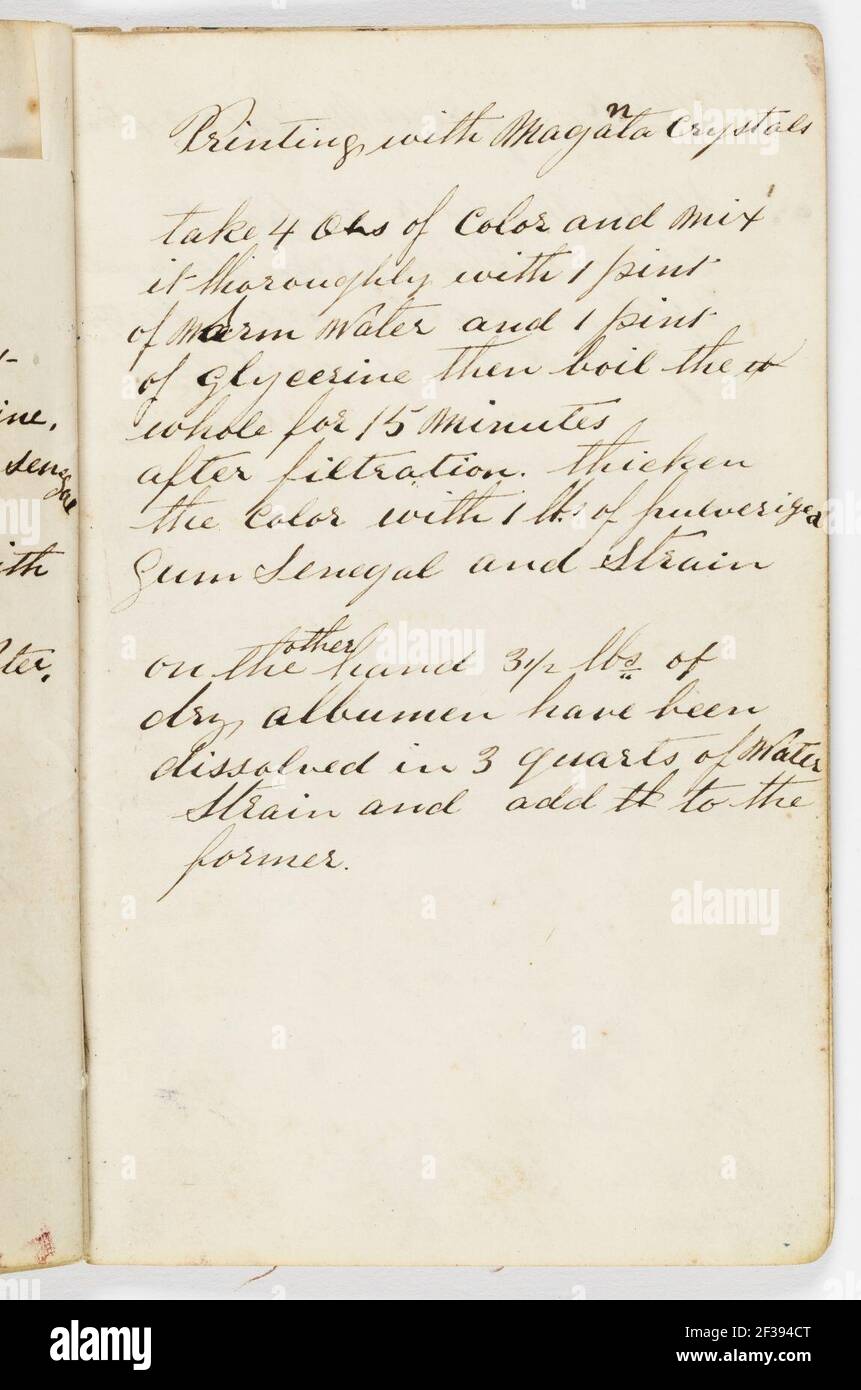 Printing with Maganta Crystals
take 4 Ohs of Color and Mix
it thoroughly with 1 pint
of Warm Water and 1 pint
of glycerine then boil the
whole for 15 Minutes
after filtration. thicken
the Color with 1 lb. of pulverized
Gum Senegal and Strain
on the other hand 3 1/2 lbs of
dry albumen have been
dissolved in 3 quarts of Water
Strain and add it to the
former.
ine,
senegal
ith
ter,
alamy
Image ID: 2F394CT
www.alamy.com